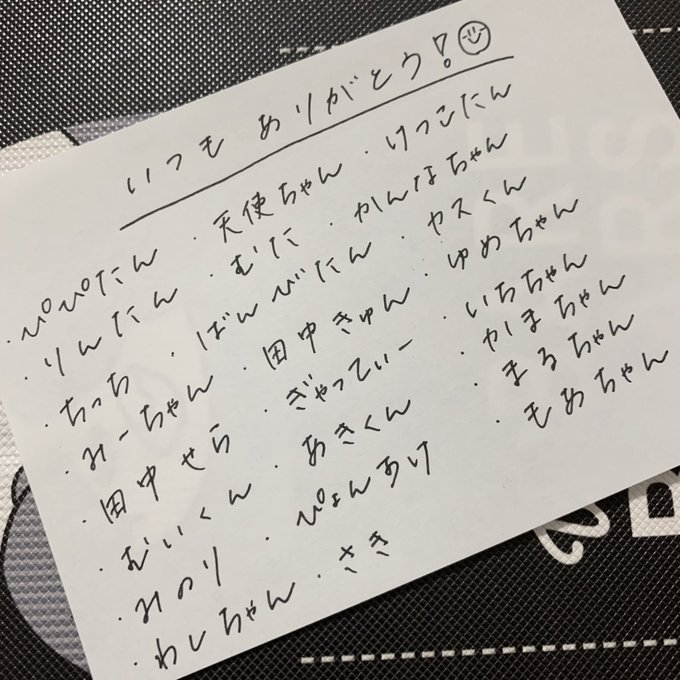 いつも ありがとう!
・ぴぴたん ・天使ちゃん ・けつこたん
・りんたん ・むた ・かんなちゃん
・ちっち ・ばんびたん ・ヤスくん
・みーちゃん ・田中きゅん ・ゆめちゃん
・田中せら ・ぎゃってぃー ・いちちゃん
・むいくん ・あきくん ・かしまちゃん
・みのり ・ぴょんあけ ・まるちゃん
・わしちゃん ・さき ・もめちゃん